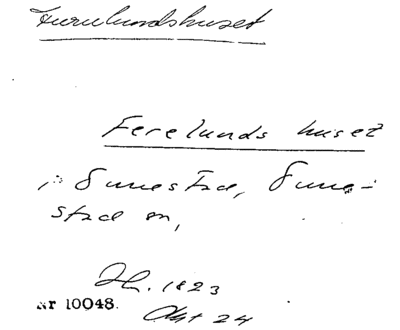 Furulundshuset
Ferelunds huset
i Sunestad, Sune-
stad sn,
Hf. 1823
Akt 24
Nr 10048.